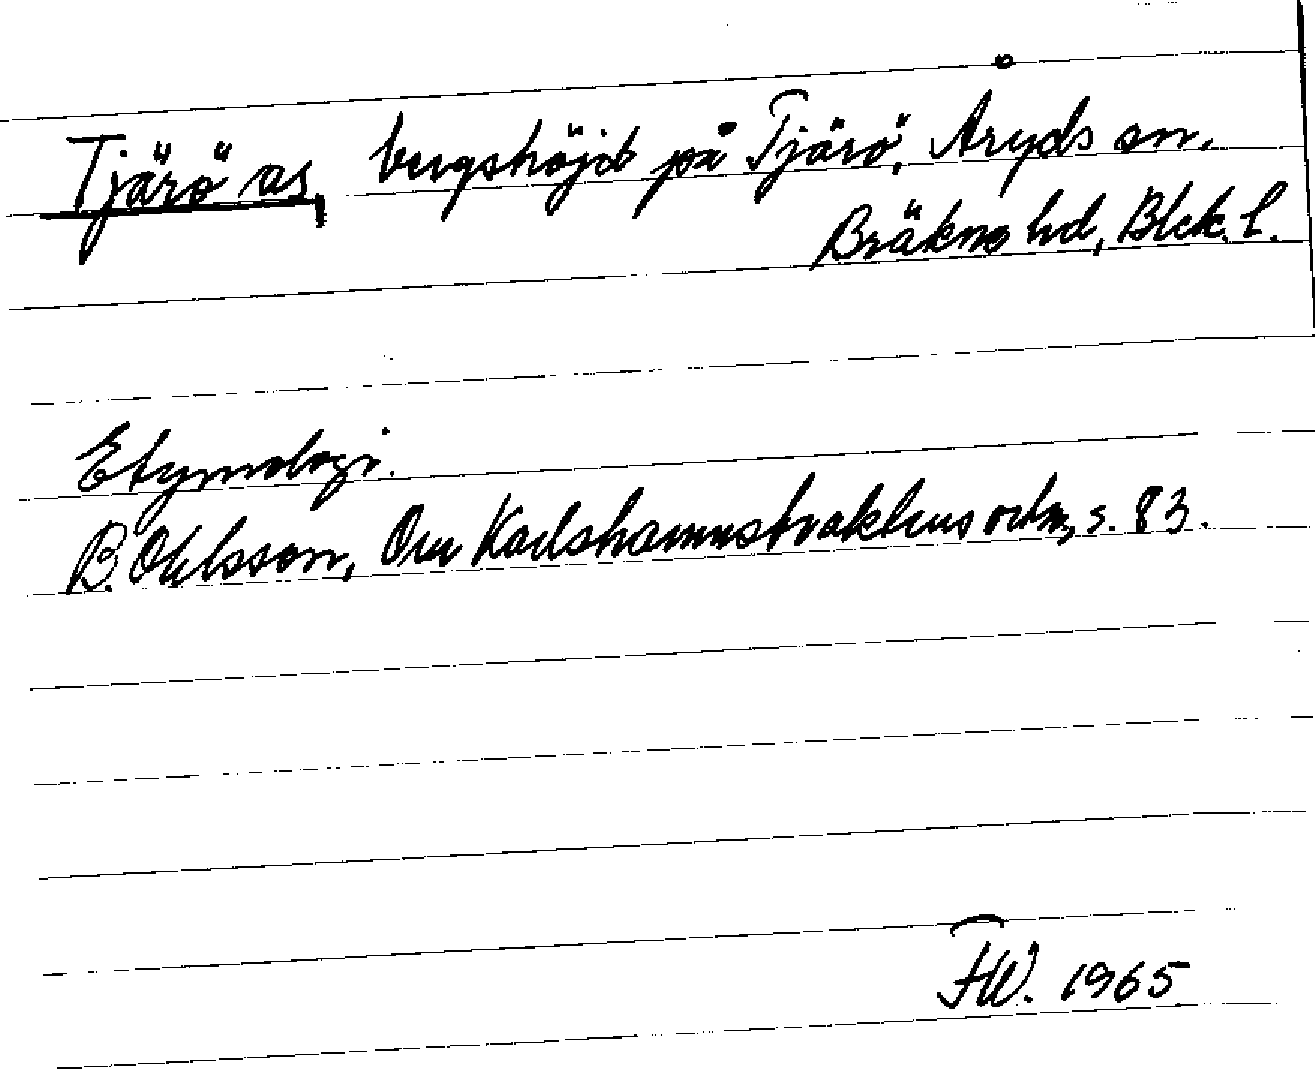 Tjärö as, bergshöjd på Tjärö, Åryds sn.
Bräkne hd, Blek. l.
Etymologi.
B. Ohlsson, Om Karlshamnstraktens ortn, s. 83.
FW. 1965